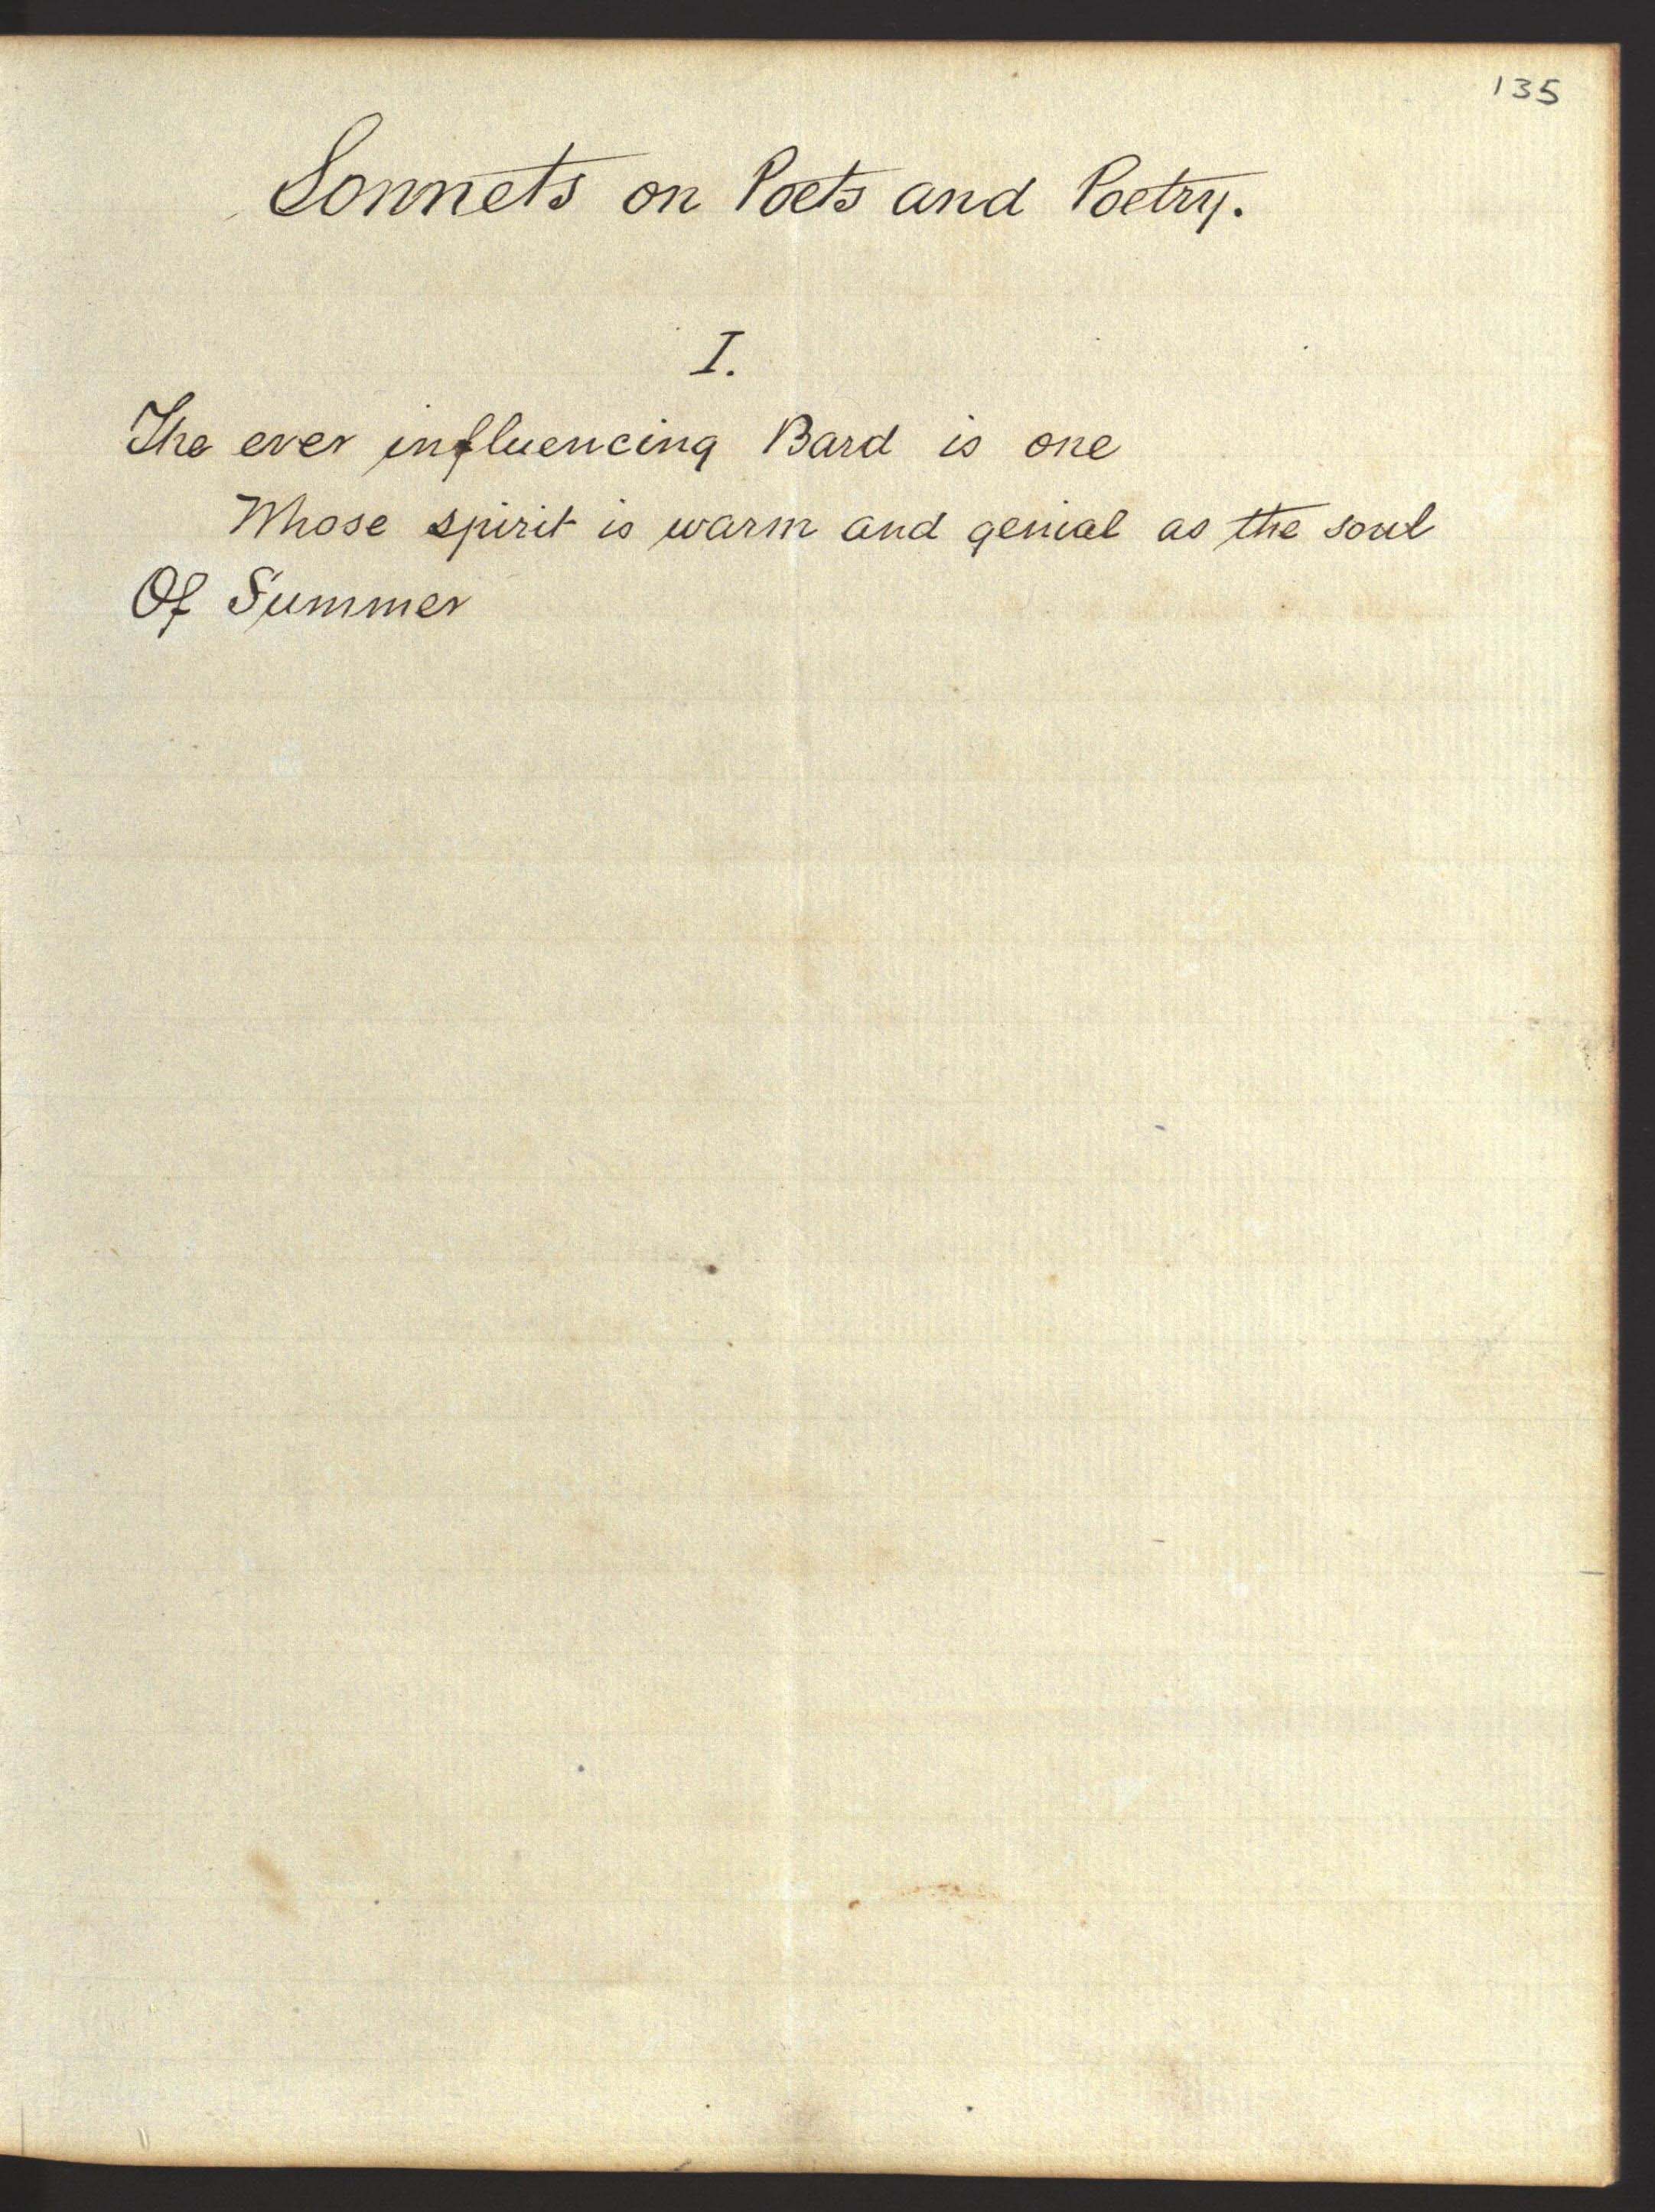 135
Sonnets on Poets and Poetry.
I.
The ever influencing Bard is one
Whose spirit is warm and genial as the soul
Of Summer